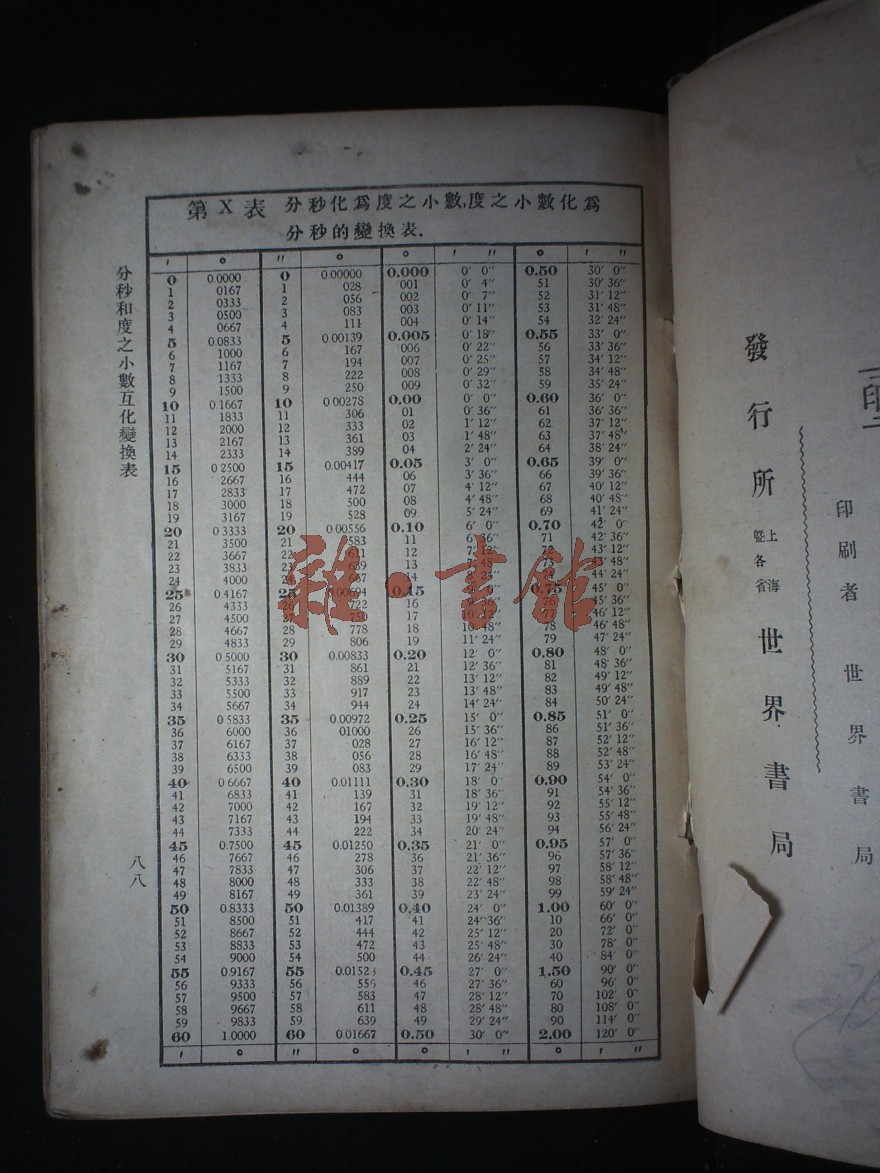 第X表 分秒化爲度之小數,度之小數化爲
分秒的變換表.
′ ° ″ ° ° ′ ″ ° ′ ″
0 0.0000 0 0.00000 0.000 0′ 0″ 0.50 30′ 0″
1 0167 1 028 001 0′ 4″ 51 30′ 36″
2 0333 2 056 002 0′ 7″ 52 31′ 12″
3 0500 3 083 003 0′ 11″ 53 31′ 48″
4 0667 4 111 004 0′ 14″ 54 32′ 24″
5 0.0833 5 0.00139 0.005 0′ 18″ 0.55 33′ 0″
6 1000 6 167 006 0′ 22″ 56 33′ 36″
7 1167 7 194 007 0′ 25″ 57 34′ 12″
8 1333 8 222 008 0′ 29″ 58 34′ 48″
9 1500 9 250 009 0′ 32″ 59 35′ 24″
10 0.1667 10 0.00278 0.00 0′ 0″ 0.60 36′ 0″
11 1833 11 306 01 0′ 36″ 61 36′ 36″
12 2000 12 333 02 1′ 12″ 62 37′ 12″
13 2167 13 361 03 1′ 48″ 63 37′ 48″
14 2333 14 389 04 2′ 24″ 64 38′ 24″
15 0.2500 15 0.00417 0.05 3′ 0″ 0.65 39′ 0″
16 2667 16 444 06 3′ 36″ 66 39′ 36″
17 2833 17 472 07 4′ 12″ 67 40′ 12″
18 3000 18 500 08 4′ 48″ 68 40′ 48″
19 3167 19 528 09 5′ 24″ 69 41′ 24″
20 0.3333 20 0.00556 0.10 6′ 0″ 0.70 42′ 0″
21 3500 21 583 11 6′ 36″ 71 42′ 36″
22 3667 22 611 12 7′ 12″ 72 43′ 12″
23 3833 23 639 13 7′ 48″ 73 43′ 48″
24 4000 24 667 14 8′ 24″ 74 44′ 24″
25 0.4167 25 0.00694 0.15 9′ 0″ 0.75 45′ 0″
26 4333 26 722 16 9′ 36″ 76 45′ 36″
27 4500 27 750 17 10′ 12″ 77 46′ 12″
28 4667 28 778 18 10′ 48″ 78 46′ 48″
29 4833 29 806 19 11′ 24″ 79 47′ 24″
30 0.5000 30 0.00833 0.20 12′ 0″ 0.80 48′ 0″
31 5167 31 861 21 12′ 36″ 81 48′ 36″
32 5333 32 889 22 13′ 12″ 82 49′ 12″
33 5500 33 917 23 13′ 48″ 83 49′ 48″
34 5667 34 944 24 14′ 24″ 84 50′ 24″
35 0.5833 35 0.00972 0.25 15′ 0″ 0.85 51′ 0″
36 6000 36 01000 26 15′ 36″ 86 51′ 36″
37 6167 37 028 27 16′ 12″ 87 52′ 12″
38 6333 38 056 28 16′ 48″ 88 52′ 48″
39 6500 39 083 29 17′ 24″ 89 53′ 24″
40 0.6667 40 0.01111 0.30 18′ 0″ 0.90 54′ 0″
41 6833 41 139 31 18′ 36″ 91 54′ 36″
42 7000 42 167 32 19′ 12″ 92 55′ 12″
43 7167 43 194 33 19′ 48″ 93 55′ 48″
44 7333 44 222 34 20′ 24″ 94 56′ 24″
45 0.7500 45 0.01250 0.35 21′ 0″ 0.95 57′ 0″
46 7667 46 278 36 21′ 36″ 96 57′ 36″
47 7833 47 306 37 22′ 12″ 97 58′ 12″
48 8000 48 333 38 22′ 48″ 98 58′ 48″
49 8167 49 361 39 23′ 24″ 99 59′ 24″
50 0.8333 50 0.01389 0.40 24′ 0″ 1.00 60′ 0″
51 8500 51 417 41 24′ 36″ 10 66′ 0″
52 8667 52 444 42 25′ 12″ 20 72′ 0″
53 8833 53 472 43 25′ 48″ 30 78′ 0″
54 9000 54 500 44 26′ 24″ 40 84′ 0″
55 0.9167 55 0.01528 0.45 27′ 0″ 1.50 90′ 0″
56 9333 56 556 46 27′ 36″ 60 96′ 0″
57 9500 57 583 47 28′ 12″ 70 102′ 0″
58 9667 58 611 48 28′ 48″ 80 108′ 0″
59 9833 59 639 49 29′ 24″ 90 114′ 0″
60 1.0000 60 0.01667 0.50 30′ 0″ 2.00 120′ 0″
′ ° ″ ° ° ′ ″ ° ′ ″
分秒和度之小數互化變換表
八八
雜·書館
印刷者 世界書局
發行所 上海曁各省 世界書局